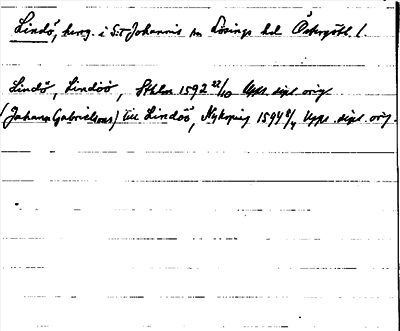 Lindö, herrg. i S:T Johannis sn Lösings hd Östergötl. l.
Lindö, Lindöö, Sthlm 1592 22/10 Upps. dipl. orig.
(Johan Gabrielsons) till Lindöö, Nyköping 1594 9/4 Upps. dipl. orig.